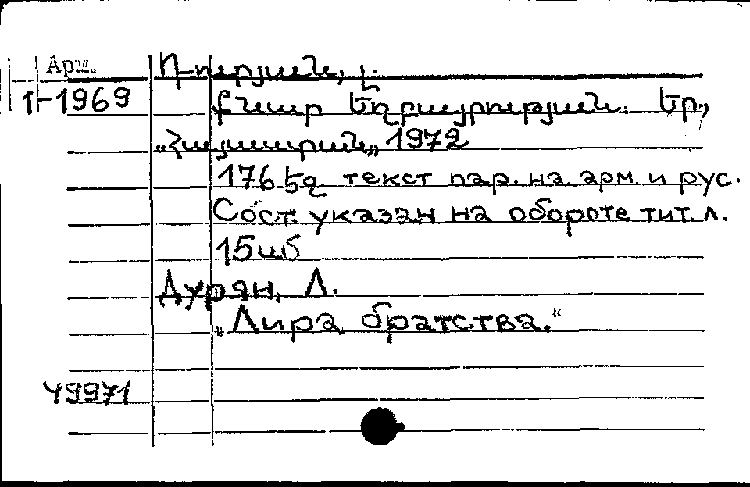 Арм. Դուրյան, Լ.
Դ-1969 Քնար եղբայրության. Եր.,
„Հայաստան„ 1972
176 էջ текст пар. на арм. и рус.
Сост. указан на обороте тит. л.
15աб
Дурян, Л.
„Лира братства.“
49971